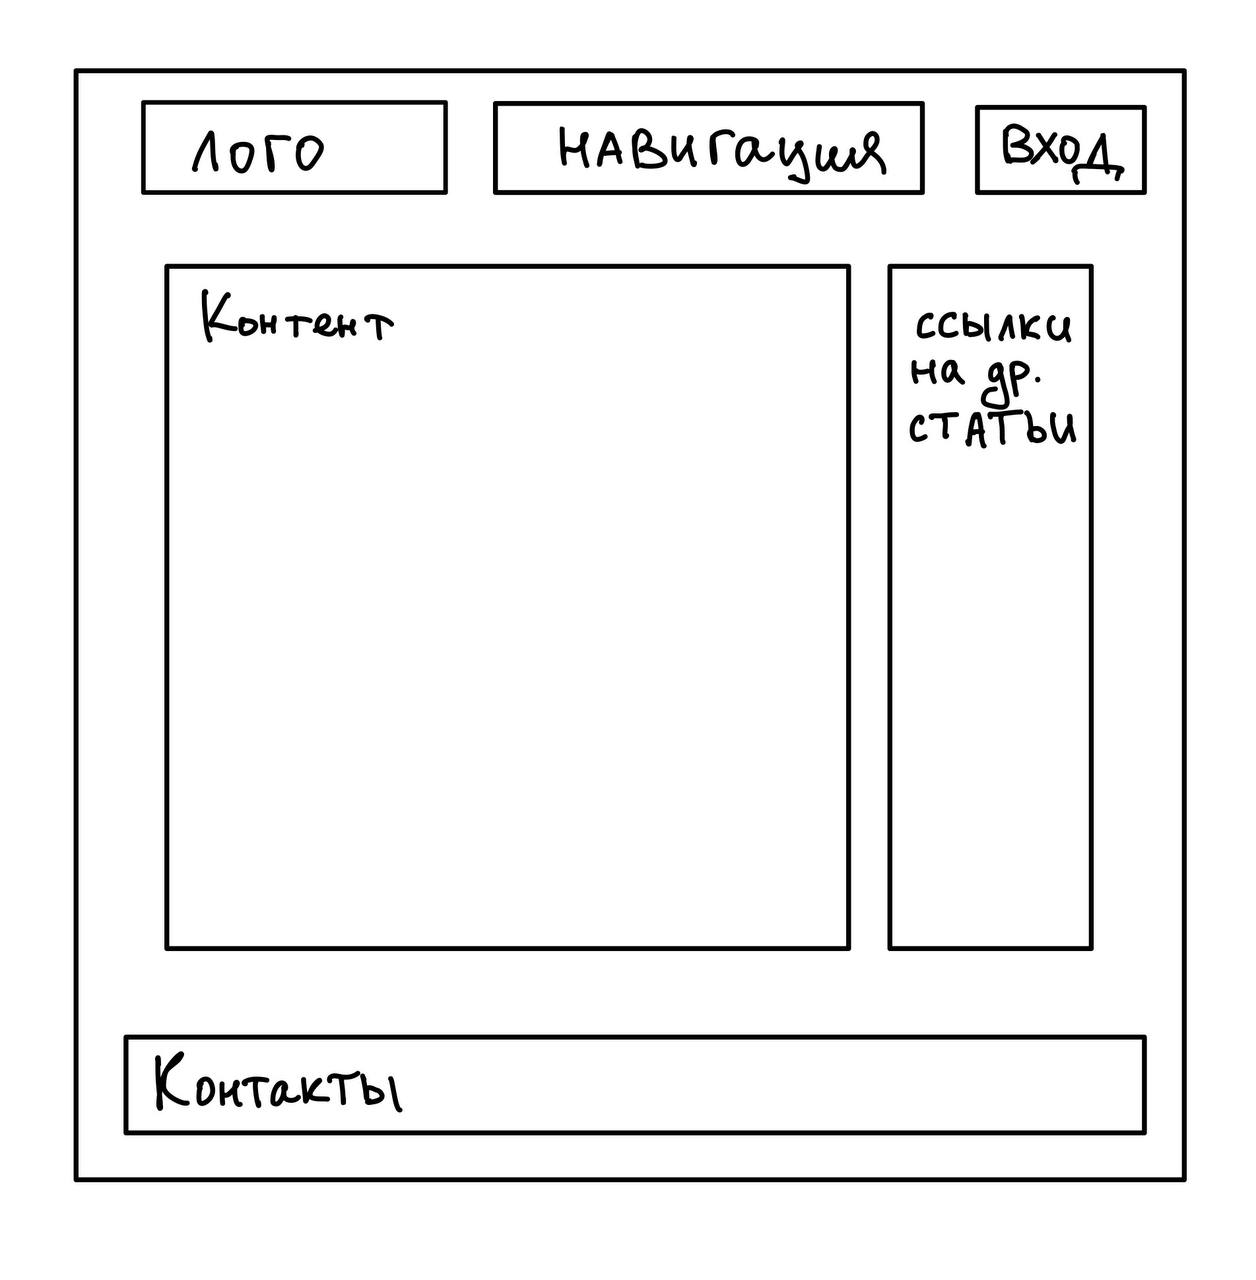 Лого
Навигация
Вход
Контент
ссылки
на др.
статьи
Контакты